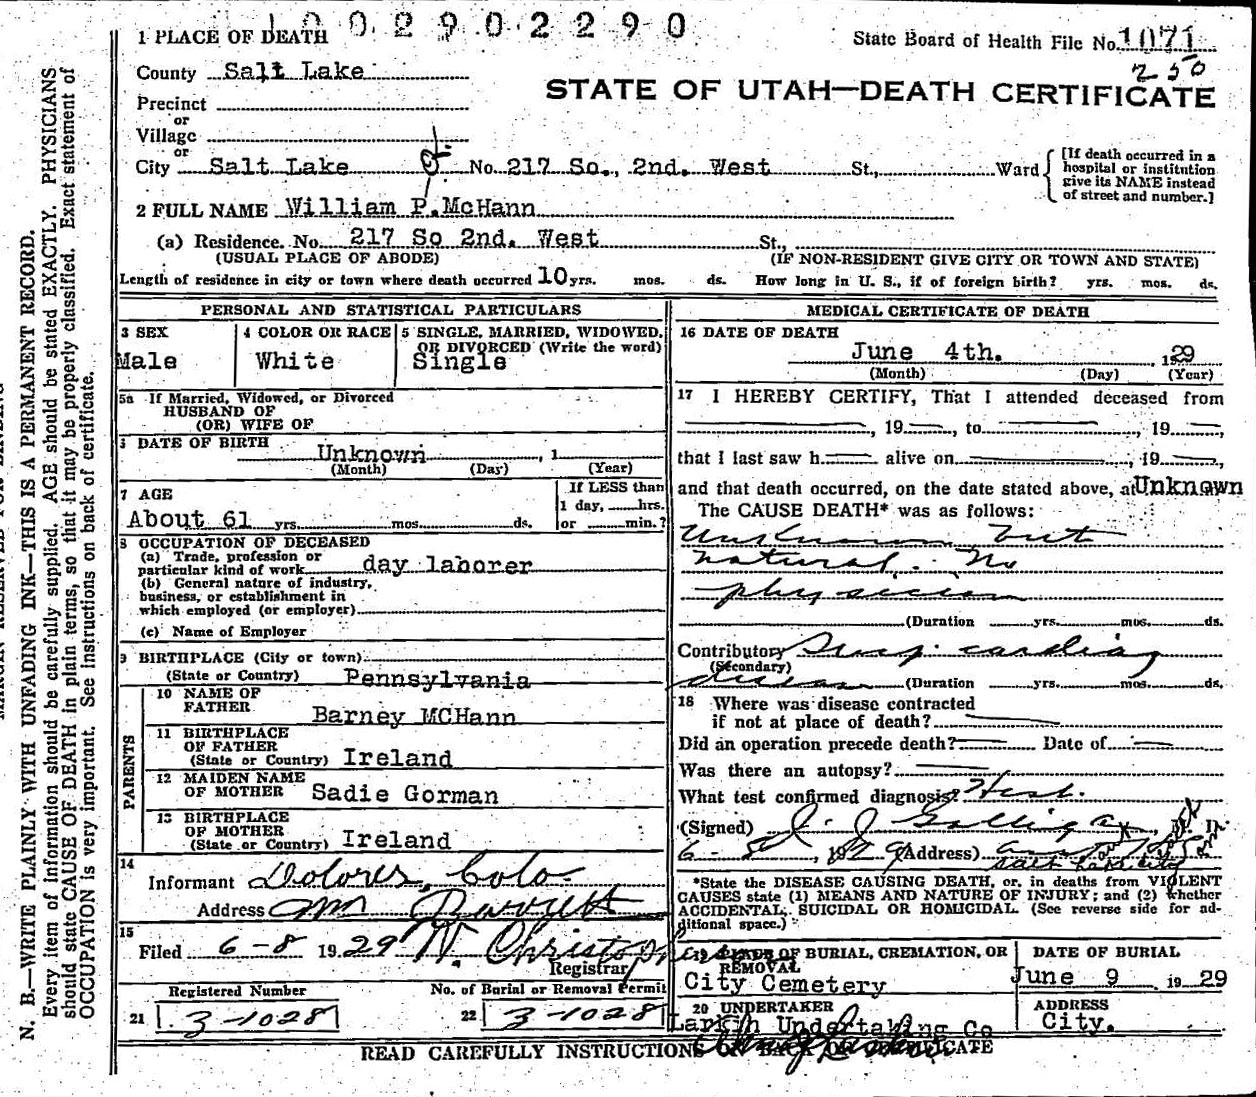 1002902290
1 PLACE OF DEATH
State Board of Health File No. 1071
250
County Salt Lake
STATE OF UTAH—DEATH CERTIFICATE
Precinct
or
Village
or
City Salt Lake No. 217 So., 2nd. West St., Ward
[If death occurred in a hospital or institution give its NAME instead of street and number.]
2 FULL NAME William P. McHann
(a) Residence. No. 217 So 2nd. West St.,
(USUAL PLACE OF ABODE) (IF NON-RESIDENT GIVE CITY OR TOWN AND STATE)
Length of residence in city or town where death occurred 10 yrs. mos. ds. How long in U. S., if of foreign birth? yrs. mos. ds.
PERSONAL AND STATISTICAL PARTICULARS
3 SEX
Male
4 COLOR OR RACE
White
5 SINGLE, MARRIED, WIDOWED,
OR DIVORCED (Write the word)
Single
5a If Married, Widowed, or Divorced
HUSBAND OF
(OR) WIFE OF
DATE OF BIRTH Unknown , 1
(Month) (Day) (Year)
7 AGE
About 61 yrs. mos. ds.
If LESS than
1 day, hrs.
or min.?
8 OCCUPATION OF DECEASED
(a) Trade, profession or
particular kind of work day laborer
(b) General nature of industry,
business, or establishment in
which employed (or employer)
(c) Name of Employer
9 BIRTHPLACE (City or town)
(State or Country) Pennsylvania
PARENTS
10 NAME OF
FATHER
Barney MCHann
11 BIRTHPLACE
OF FATHER
(State or Country) Ireland
12 MAIDEN NAME
OF MOTHER Sadie Gorman
13 BIRTHPLACE
OF MOTHER
(State or Country) Ireland
14
Informant Dolores, Colo
Address Wm Barrett
15
Filed 6-8 1929 W. Christopherson
Registrar
Registered Number
21 3-1028
No. of Burial or Removal Permit
22 3-1028
MEDICAL CERTIFICATE OF DEATH
16 DATE OF DEATH
June 4th. 1929
(Month) (Day) (Year)
17 I HEREBY CERTIFY, That I attended deceased from
, 19 , to , 19 ,
that I last saw h alive on , 19 ,
and that death occurred, on the date stated above, at Unknown
The CAUSE DEATH* was as follows:
Unknown but
natural. No
physician
(Duration yrs. mos. ds.
Contributory Susp. cardiac
(Secondary)
disease (Duration yrs. mos. ds.
18 Where was disease contracted
if not at place of death?
Did an operation precede death? Date of
Was there an autopsy?
What test confirmed diagnosis? Hist.
(Signed) J. J. Galligan, M. D.
6-8, 1929 (Address)
Salt Lake City
*State the DISEASE CAUSING DEATH, or, in deaths from VIOLENT
CAUSES state (1) MEANS AND NATURE OF INJURY; and (2) whether
ACCIDENTAL, SUICIDAL OR HOMICIDAL. (See reverse side for ad-
ditional space.)
19 PLACE OF BURIAL, CREMATION, OR
REMOVAL
City Cemetery
DATE OF BURIAL
June 9 1929
20 UNDERTAKER
Larkin Undertaking Co
ADDRESS
City.
READ CAREFULLY INSTRUCTIONS ON BACK OF CERTIFICATE
N. B.—WRITE PLAINLY WITH UNFADING INK—THIS IS A PERMANENT RECORD.
Every item of information should be carefully supplied. AGE should be stated EXACTLY. PHYSICIANS
should state CAUSE OF DEATH in plain terms, so that it may be properly classified. Exact statement of
OCCUPATION is very important. See instructions on back of certificate.